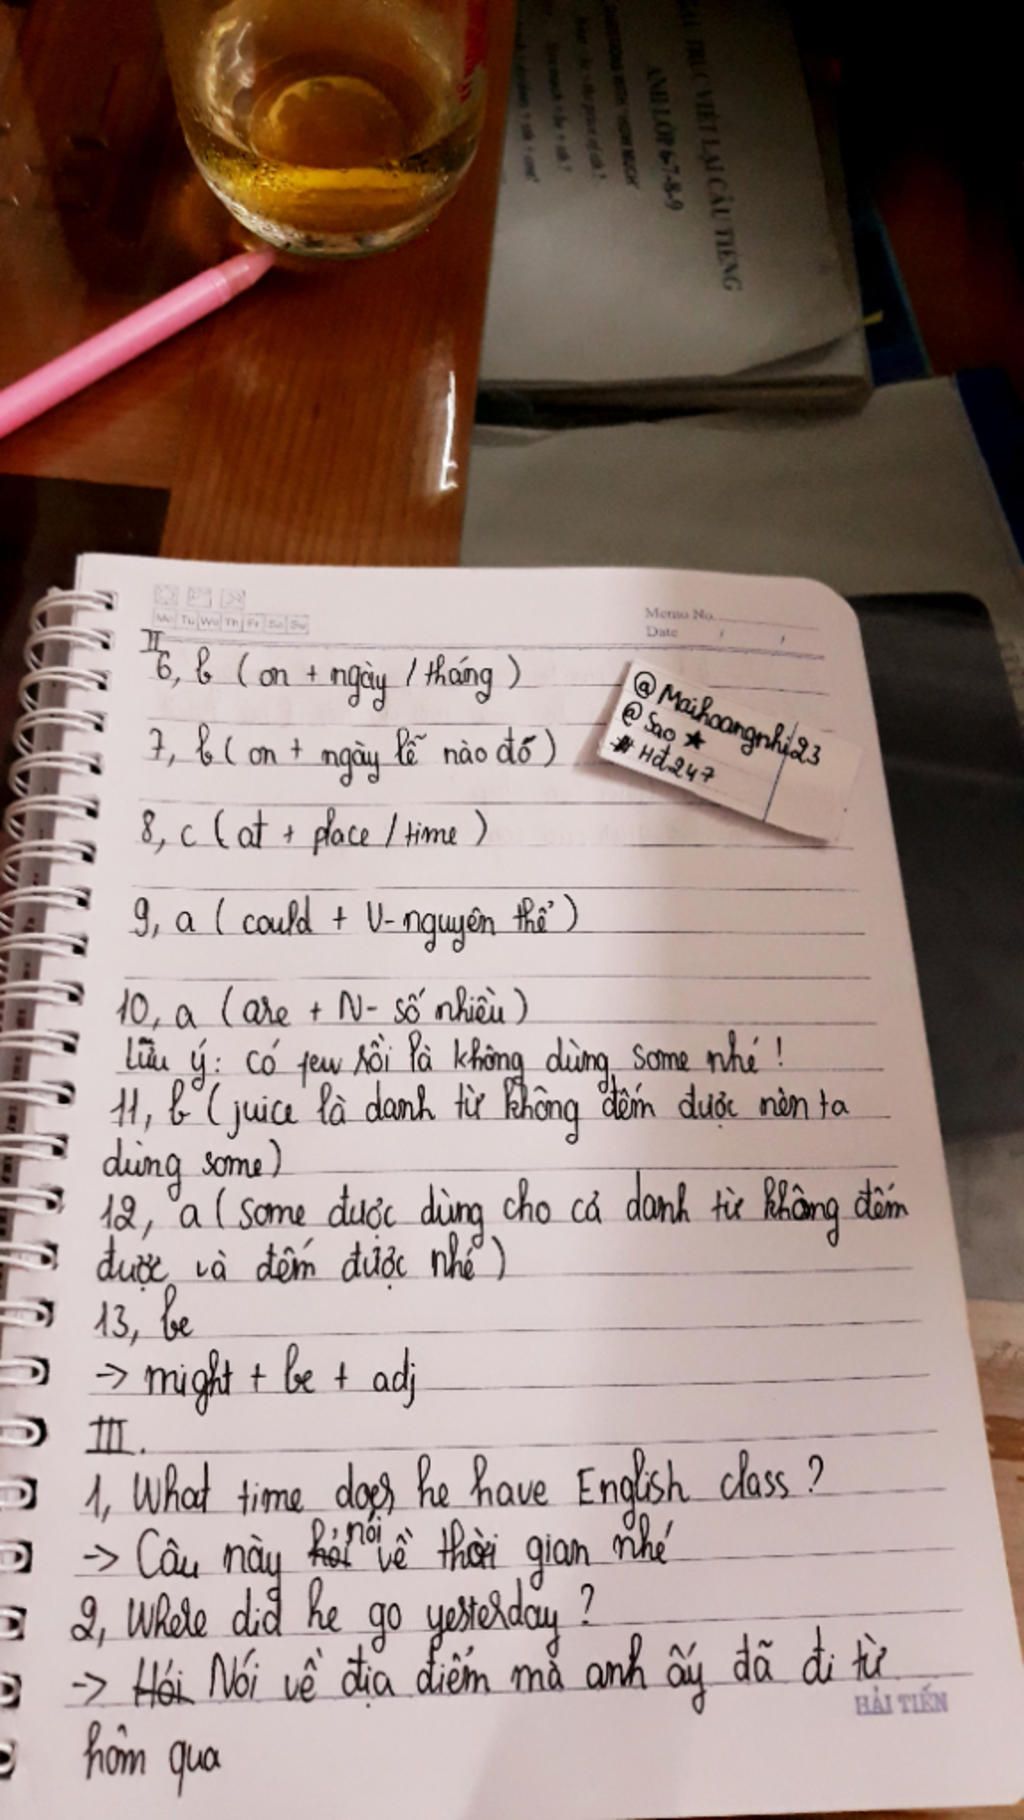 CẤU TRÚC VIẾT LẠI CÂU TIẾNG
ANH LỚP 6-7-8-9
Mo Tu We Th Fr Sa Su
Memo No.
Date / /
II
6, b (on + ngày / tháng)
7, b (on + ngày lễ nào đó)
8, c (at + place / time)
9, a (could + V-nguyên thể)
10, a (are + N- số nhiều)
Lưu ý: có few rồi là không dùng some nhé!
11, b (juice là danh từ không đếm được nên ta
dùng some)
12, a (some được dùng cho cả danh từ không đếm
được và đếm được nhé)
13, be
→ might + be + adj
III.
1, What time does he have English class?
→ Câu này hỏi nói về thời gian nhé
2, Where did he go yesterday?
→ Hỏi Nói về địa điểm mà anh ấy đã đi từ
hôm qua
@Maihoangnhi23
@Sao ★
#Hđ247
HẢI TIẾN